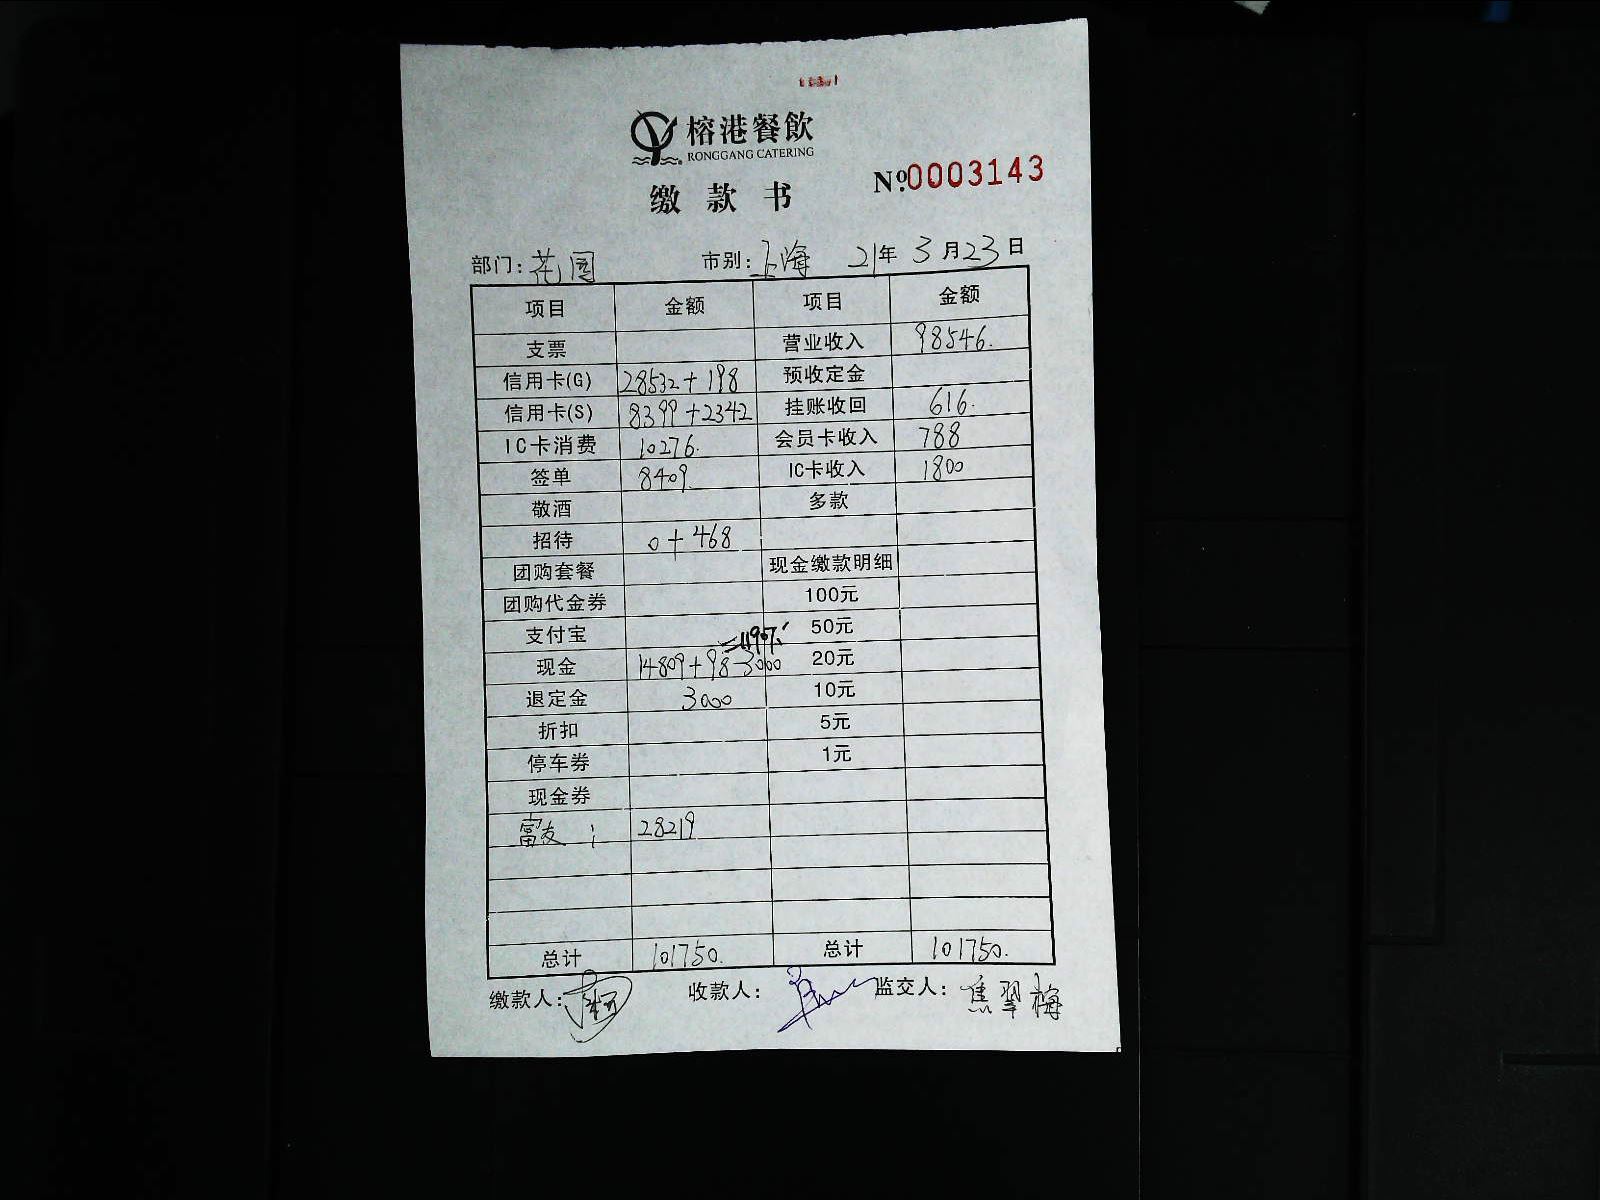 榕港餐飲
RONGGANG CATERING
缴款书 №0003143
部门：花园 市别：上海 21年3月23日
项目 金额 项目 金额
支票 营业收入 98546.
信用卡(G) 28532+198 预收定金
信用卡(S) 8399+2342 挂账收回 616.
IC卡消费 10276. 会员卡收入 788
签单 8409. IC卡收入 1800
敬酒 多款
招待 0+468
团购套餐 现金缴款明细
团购代金券 100元
支付宝 50元
=11907.
现金 14809+98-3000 20元
退定金 3000 10元
折扣 5元
停车券 1元
现金券
富友： 28219
总计 101750. 总计 101750.
缴款人： 收款人： 监交人：焦翠梅